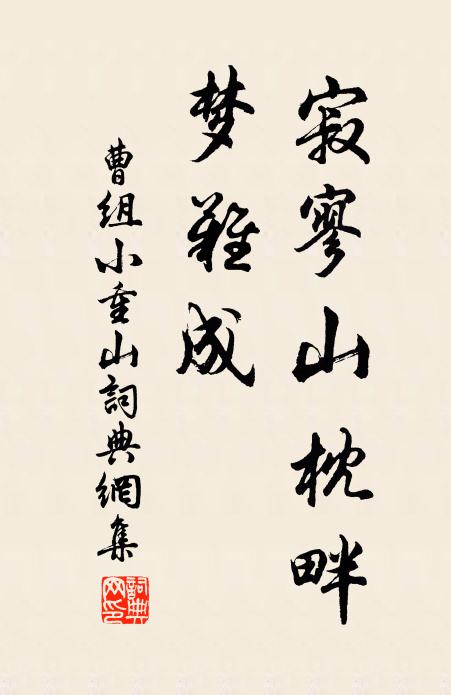 寂寥山枕畔
梦難成
曹組小重山詞典網集
詞典网印